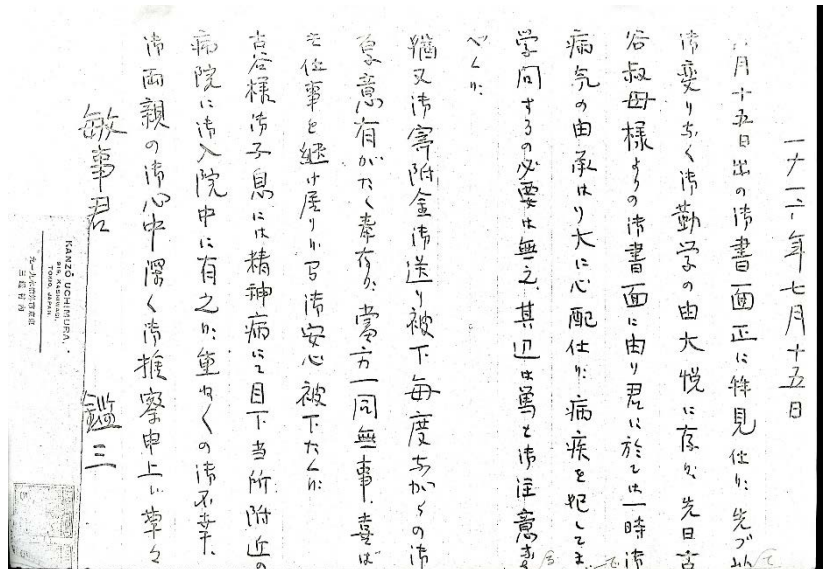 一九一六年七月十五日
月十五日出の御書面正に拝見仕り候、先づ以
御変りなく御勤学の由大悦に存候、先日古
谷叔母様よりの御書面に由り君に於ては一時御
病気の由承はり大に心配仕り候、病疾を犯してま
学問するの必要は無之、其辺は篤と御注意
べく候、
猶又御寄附金御送り被下毎度ながらの御
厚意有がたく奉存候、当方一同無事、喜ば
を仕事を継け居り候間御安心被下たく候
古谷様御子息には精神病にて目下当所附近の
病院に御入院中に有之候、重ねくの御不幸、
御両親の御心中深く御推察申上候 草々
鑑三
敏事君
KANZŌ UCHIMURA,
TOKYO, JAPAN.